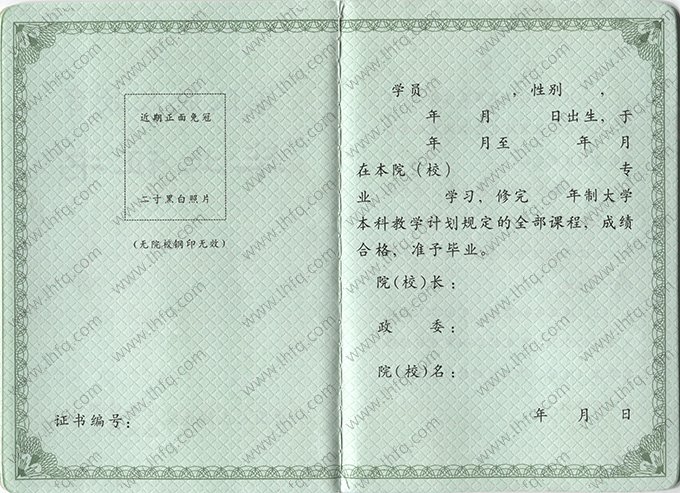 近期正面免冠
二寸黑白照片
(无院校钢印无效)
证书编号:
学员 , 性别 ,
年 月 日出生, 于
年 月至 年 月
在本院(校) 专
业 学习, 修完 年制大学
本科教学计划规定的全部课程, 成绩
合格, 准予毕业。
院(校)长:
政 委:
院(校)名:
年 月 日
www.lhfq.com